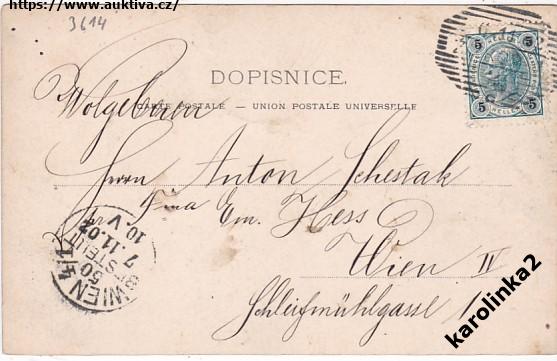 https://www.auktiva.cz/
3614
5 5
5 5
DOPISNICE.
CARTE POSTALE – UNION POSTALE UNIVERSELLE
Wolgeboren
Herrn Anton Schestak
Fina Em. Hess
Wien IV
Schleifmühlgasse 1
WIEN 4/1
50
BESTELLT
7.11.02
10.V
karolinka2